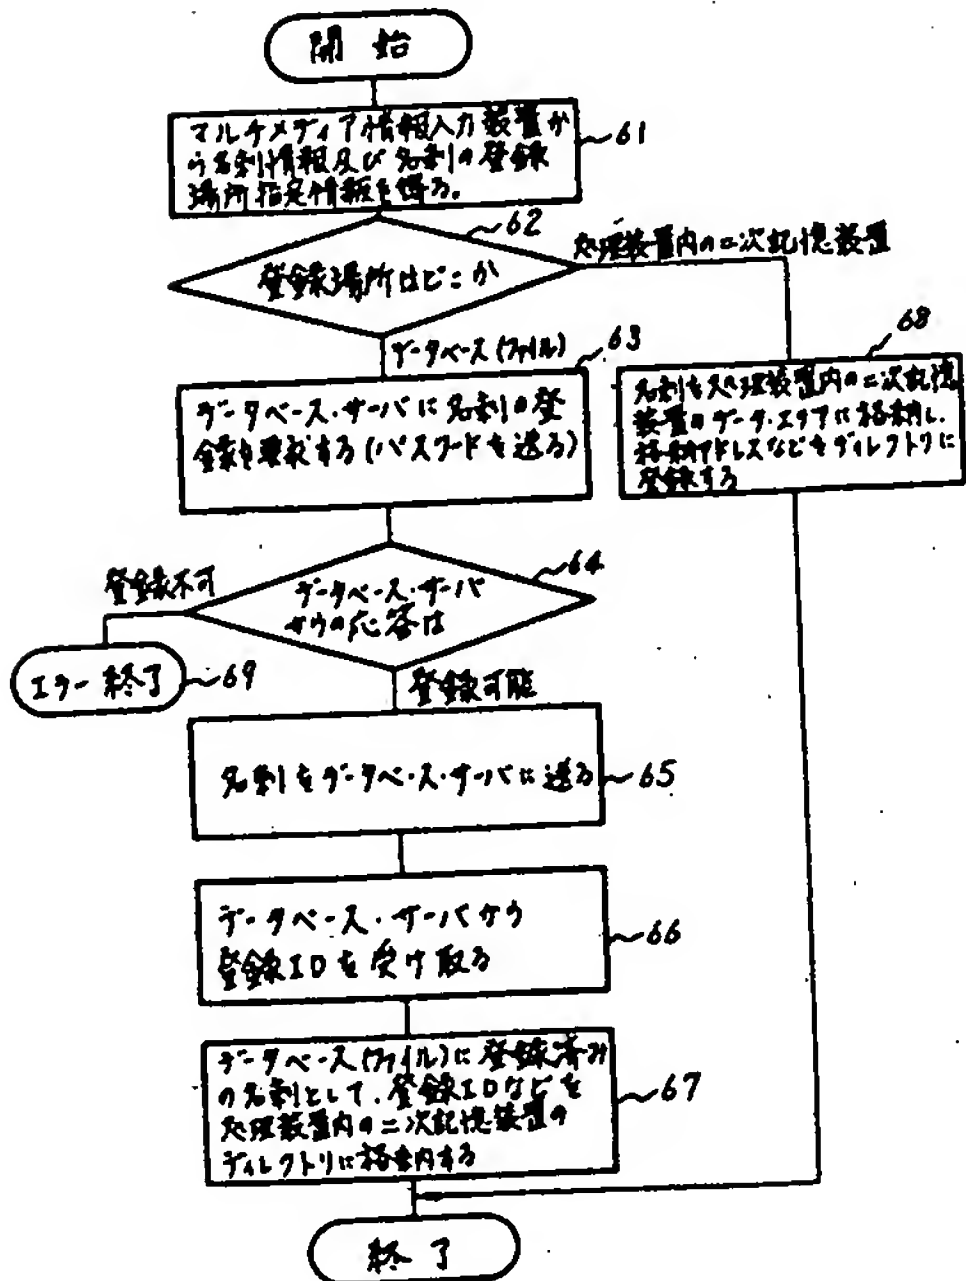 開始
マルチメディア情報入力装置か
ら名刺情報及び名刺の登録
場所指定情報を得る。
61
62
登録場所はどこか
処理装置内の二次記憶装置
データベース(ファイル)
63
データベース・サーバに名刺の登
録を要求する(パスワードを送る)
68
名刺を処理装置内の二次記憶
装置のデータ・エリアに格納し、
格納アドレスなどをディレクトリに
登録する
64
データベース・サーバ
からの応答は
登録不可
エラー終了
69
登録可能
名刺をデータベース・サーバに送る
65
データベース・サーバから
登録IDを受け取る
66
データベース(ファイル)に登録済み
の名刺として、登録IDなどを
処理装置内の二次記憶装置の
ディレクトリに格納する
67
終了